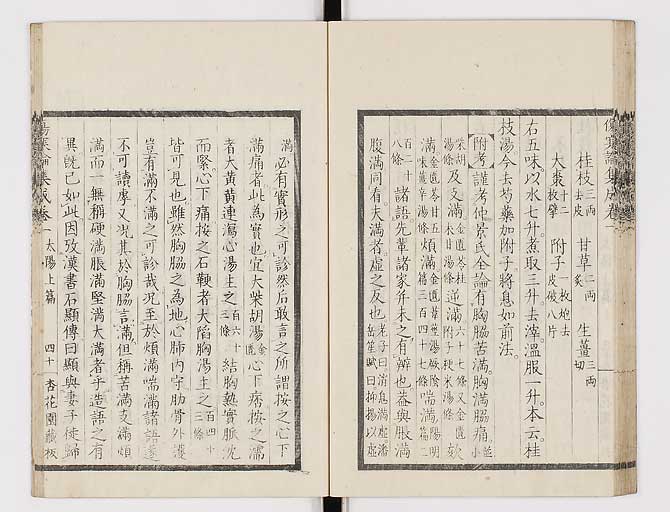 桂枝三兩去皮 甘草二兩炙 生薑三兩切
大棗十二枚擘 附子一枚炮去皮破八片
右五味以水七升煮取三升去滓溫服一升本云桂
枝湯今去芍藥加附子將息如前法
附考謹考仲景氏全論有胸脇苦滿胸滿脇痛
柴胡湯條及支滿逆滿欬
滿煩滿喘滿
百二十八條諸語先輩諸家幷未之有辨也蓋與脹滿
腹滿同看夫滿者虛之反也
傷寒論集成卷一
傷寒論集成卷一 太陽上篇 四十 杏花園藏板
滿必有實形之可診然后敢言之所謂按之心下
滿痛者此為實也宜大柴胡湯金匱心下痞按之濡
者大黃黃連瀉心湯主之百六十三條結胸熱實脈沈
而緊心下痛按之石鞕者大陷胸湯主之百四十三條
皆可見也雖然胸脇之為地心肺內守肋骨外護
豈有滿不滿之可診哉況至於煩滿喘滿諸語遂
不可讀摩又況其於胸脇言滿但稱苦滿支滿煩
滿而一無稱硬滿脹滿堅滿大滿者乎造語之有
異旣已如此因攷漢書石顯傳曰顯與妻子徒歸